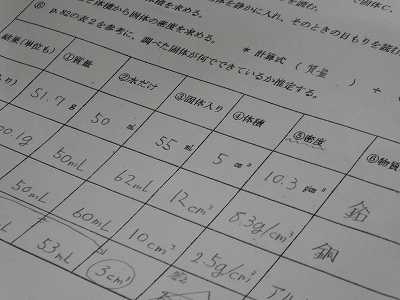 を読む。
で固体C.
体を静かに入れ、そのときの目もりを読む
体積を求める。
と体積から固体の密度を求める。
⑥ p.82の表2を参考に、調べた固体が何でできているか推定する。
* 計算式 ( 質量 ) ÷ (
結果(単位も) ①質量 ②水だけ ③固体入り ④体積 ⑤密度 ⑥物質
51.7g 50 mL 55 mL 5 cm³ 10.3 g/cm³ 鉛
50mL 62mL 12cm³ 8.3g/cm³ 銅
50mL 60mL 10cm³ 2.5g/cm³ アル
53mL 3cm³